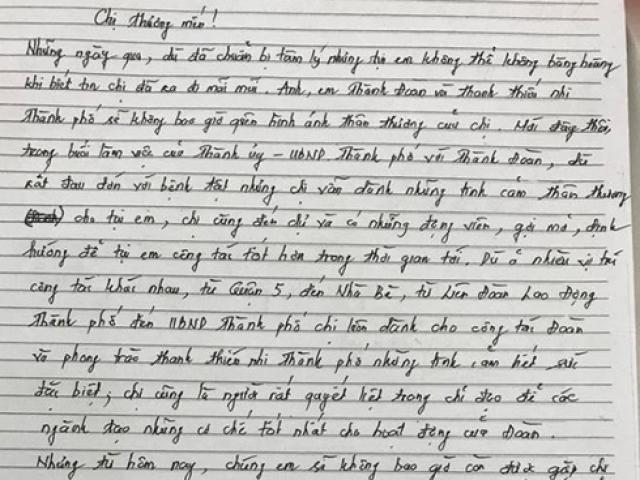 Chị thương mến!
Những ngày qua, dù đã chuẩn bị tâm lý nhưng tụi em không thể không bàng hoàng
khi biết tin chị đã ra đi mãi mãi. Anh, em Thành Đoàn và thanh thiếu nhi
Thành phố sẽ không bao giờ quên hình ảnh thân thương của chị. Mới đây thôi,
trong buổi làm việc của Thành ủy - UBND Thành phố với Thành Đoàn, dù
rất đau đớn với bệnh tật nhưng chị vẫn dành những tình cảm thân thương
cho tụi em, chị cũng đến chỉ và có những động viên, gợi mở, định
hướng để tụi em công tác tốt hơn trong thời gian tới. Dù ở nhiều vị trí
công tác khác nhau, từ Quận 5, đến Nhà Bè, từ Liên Đoàn Lao Động
Thành phố đến UBND Thành phố chị luôn dành cho công tác Đoàn
và phong trào thanh thiếu nhi Thành phố những tình cảm hết sức
đặc biệt; chị cũng là người rất quyết liệt trong chỉ đạo để các
ngành tạo những cơ chế tốt nhất cho hoạt động của Đoàn.
Nhưng từ hôm nay, chúng em sẽ không bao giờ còn được gặp chị